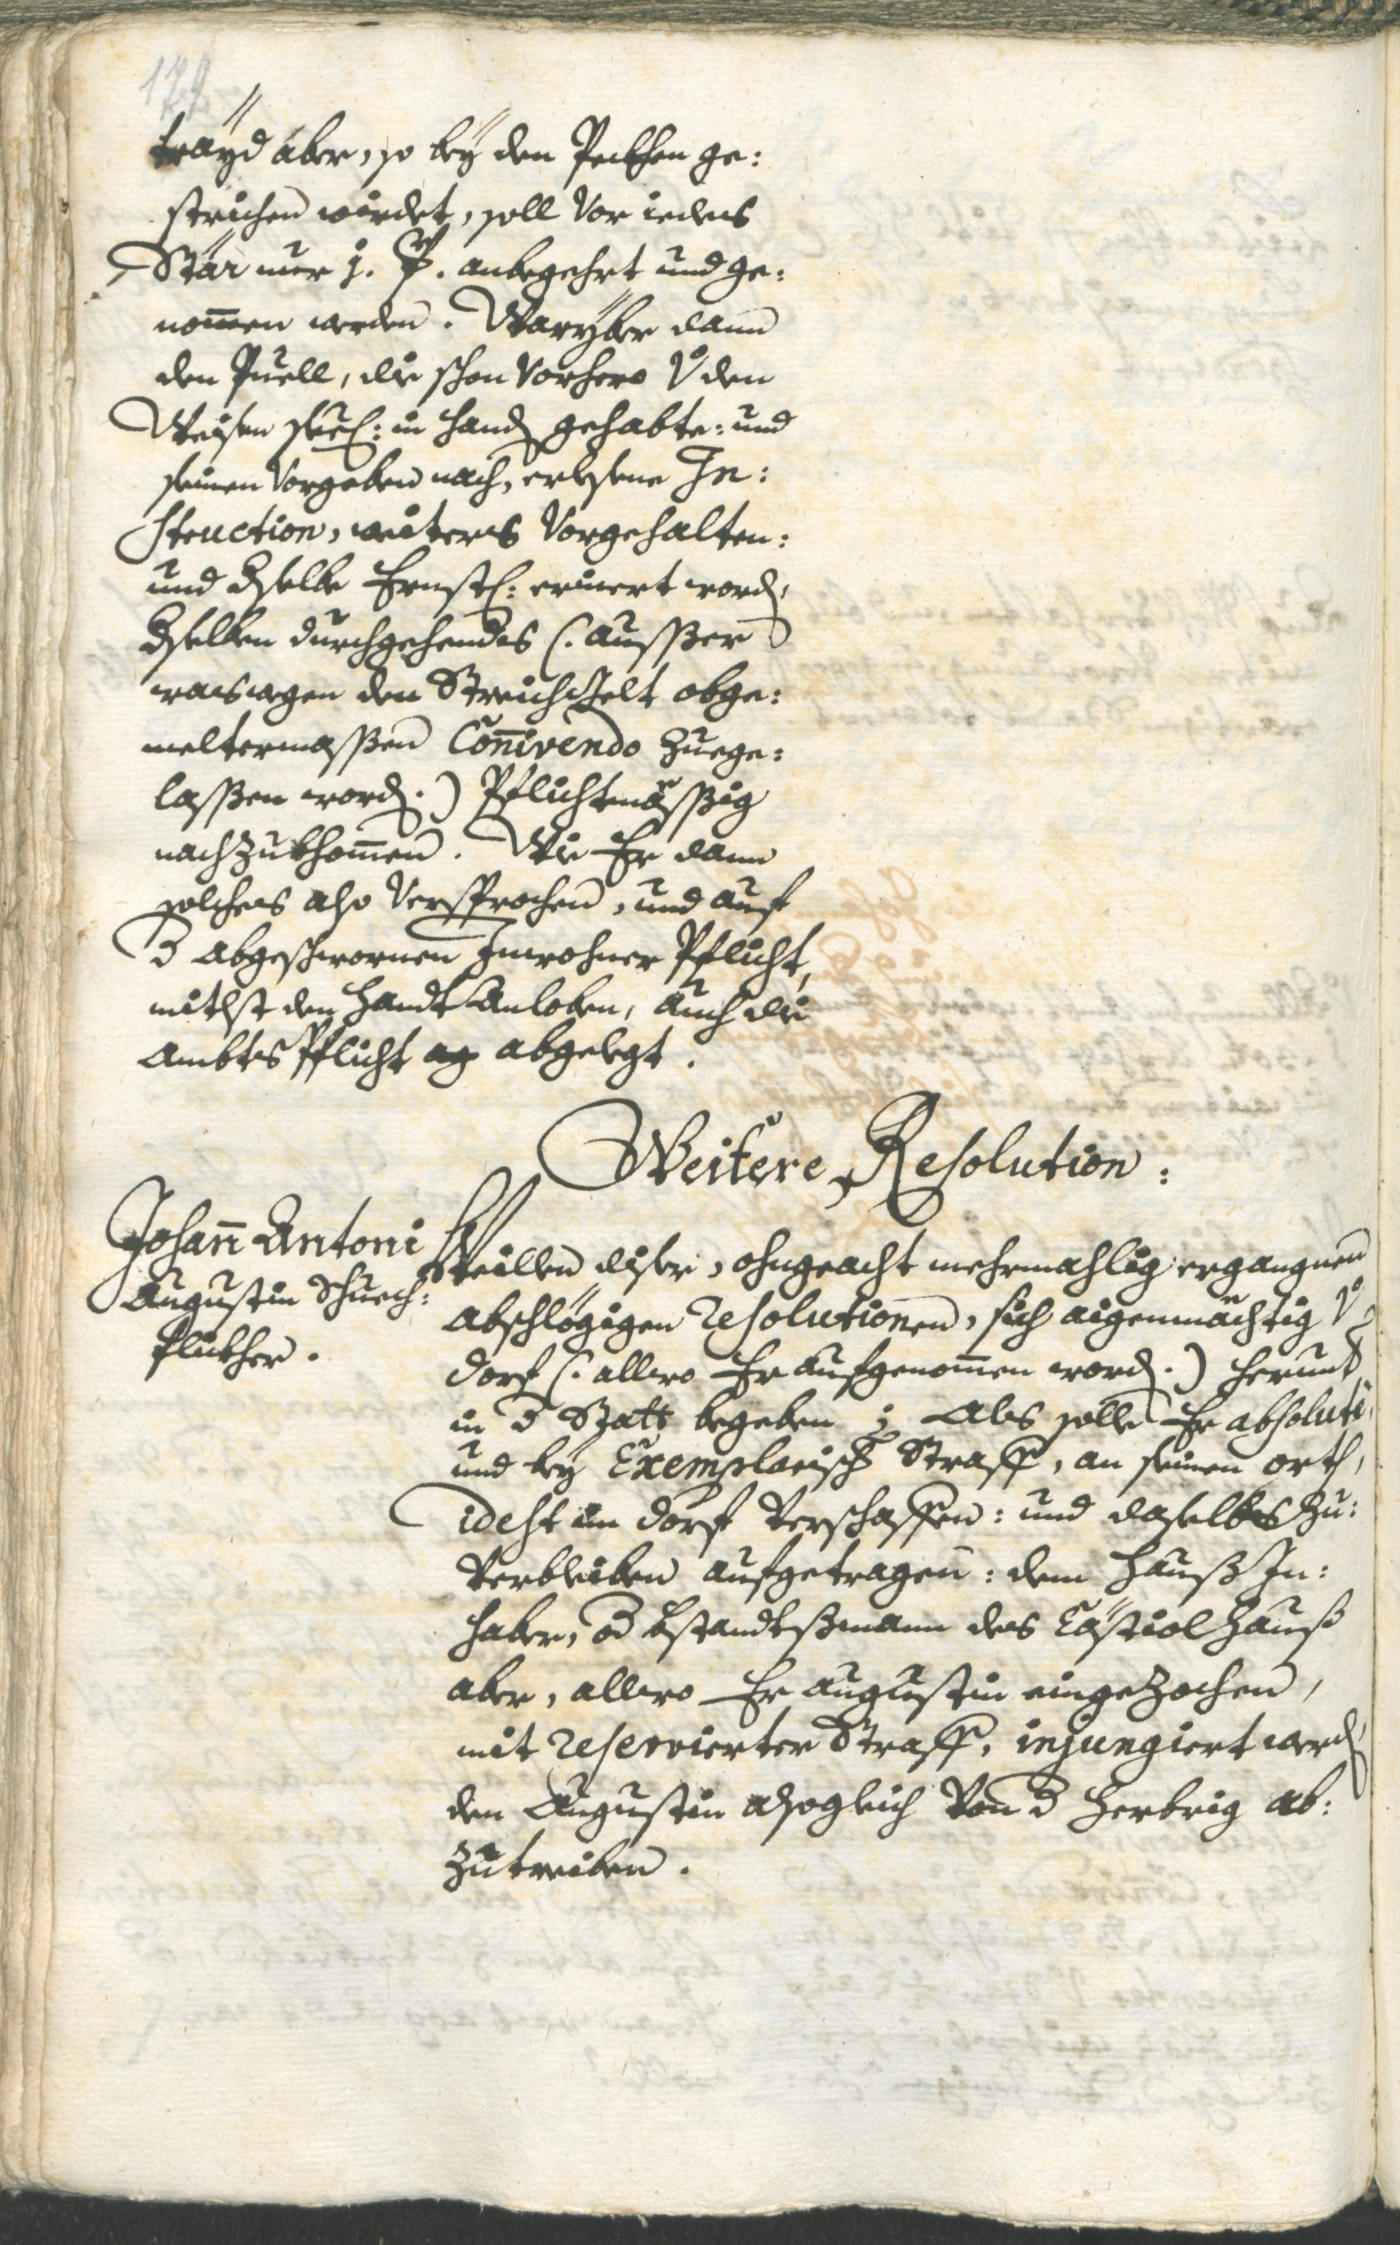 179
trayd aber, so bey den Peckhen ge:
strichen würdet, soll Vor iedes
Stär nur j. ₰. anbegehrt und ge:
nom̄en werden. Warÿber dann
den Puell, die schon Vorhero V̊ den
Weisen seel: in hand gehabte: und
seinen Vorgeben nach, erlesene In:
struction, weiters Vorgehalten:
und dselbe Ernstl: erinert word,
dselben durchgehendts (: ausser
waswegen den Streichgelt obge:
meltermassen Coñivendo Zuege:
lassen word.) Pflichtmässig
nachzukhom̄en. Wie Er dann
solches also Versprochen, und auf
d abgeschwornen Inwohner Pflicht,
mitlst den Handt Anloben, auch die
Ambts Pflicht abgelegt.
Weitere Resolution:
Johañ Antoni
Augustin Schuech:
flickher.
Weillen diser, ohngeacht mehrmahlig ergangnen
abschlögigen Resolutionen, sich aigenmächtig V̊
dorf (: allwo Er aufgenom̄en word.) herunt
in d Statt begeben; Als solle Er absolutè,
und bey Exemplarisch Straff, an seinen orth,
idest im dorf Verschaffen: und daselbes Zu:
Verbleiben aufgetragen: dem Hauss In:
haber, od bstandtssmann des Cästiol Hauss
aber, allwo Er Augustin eingezochen,
mit reservierter Straff, injungiert werd,
den Augustin alsogleich Von d Herbrig ab:
Zutreiben.